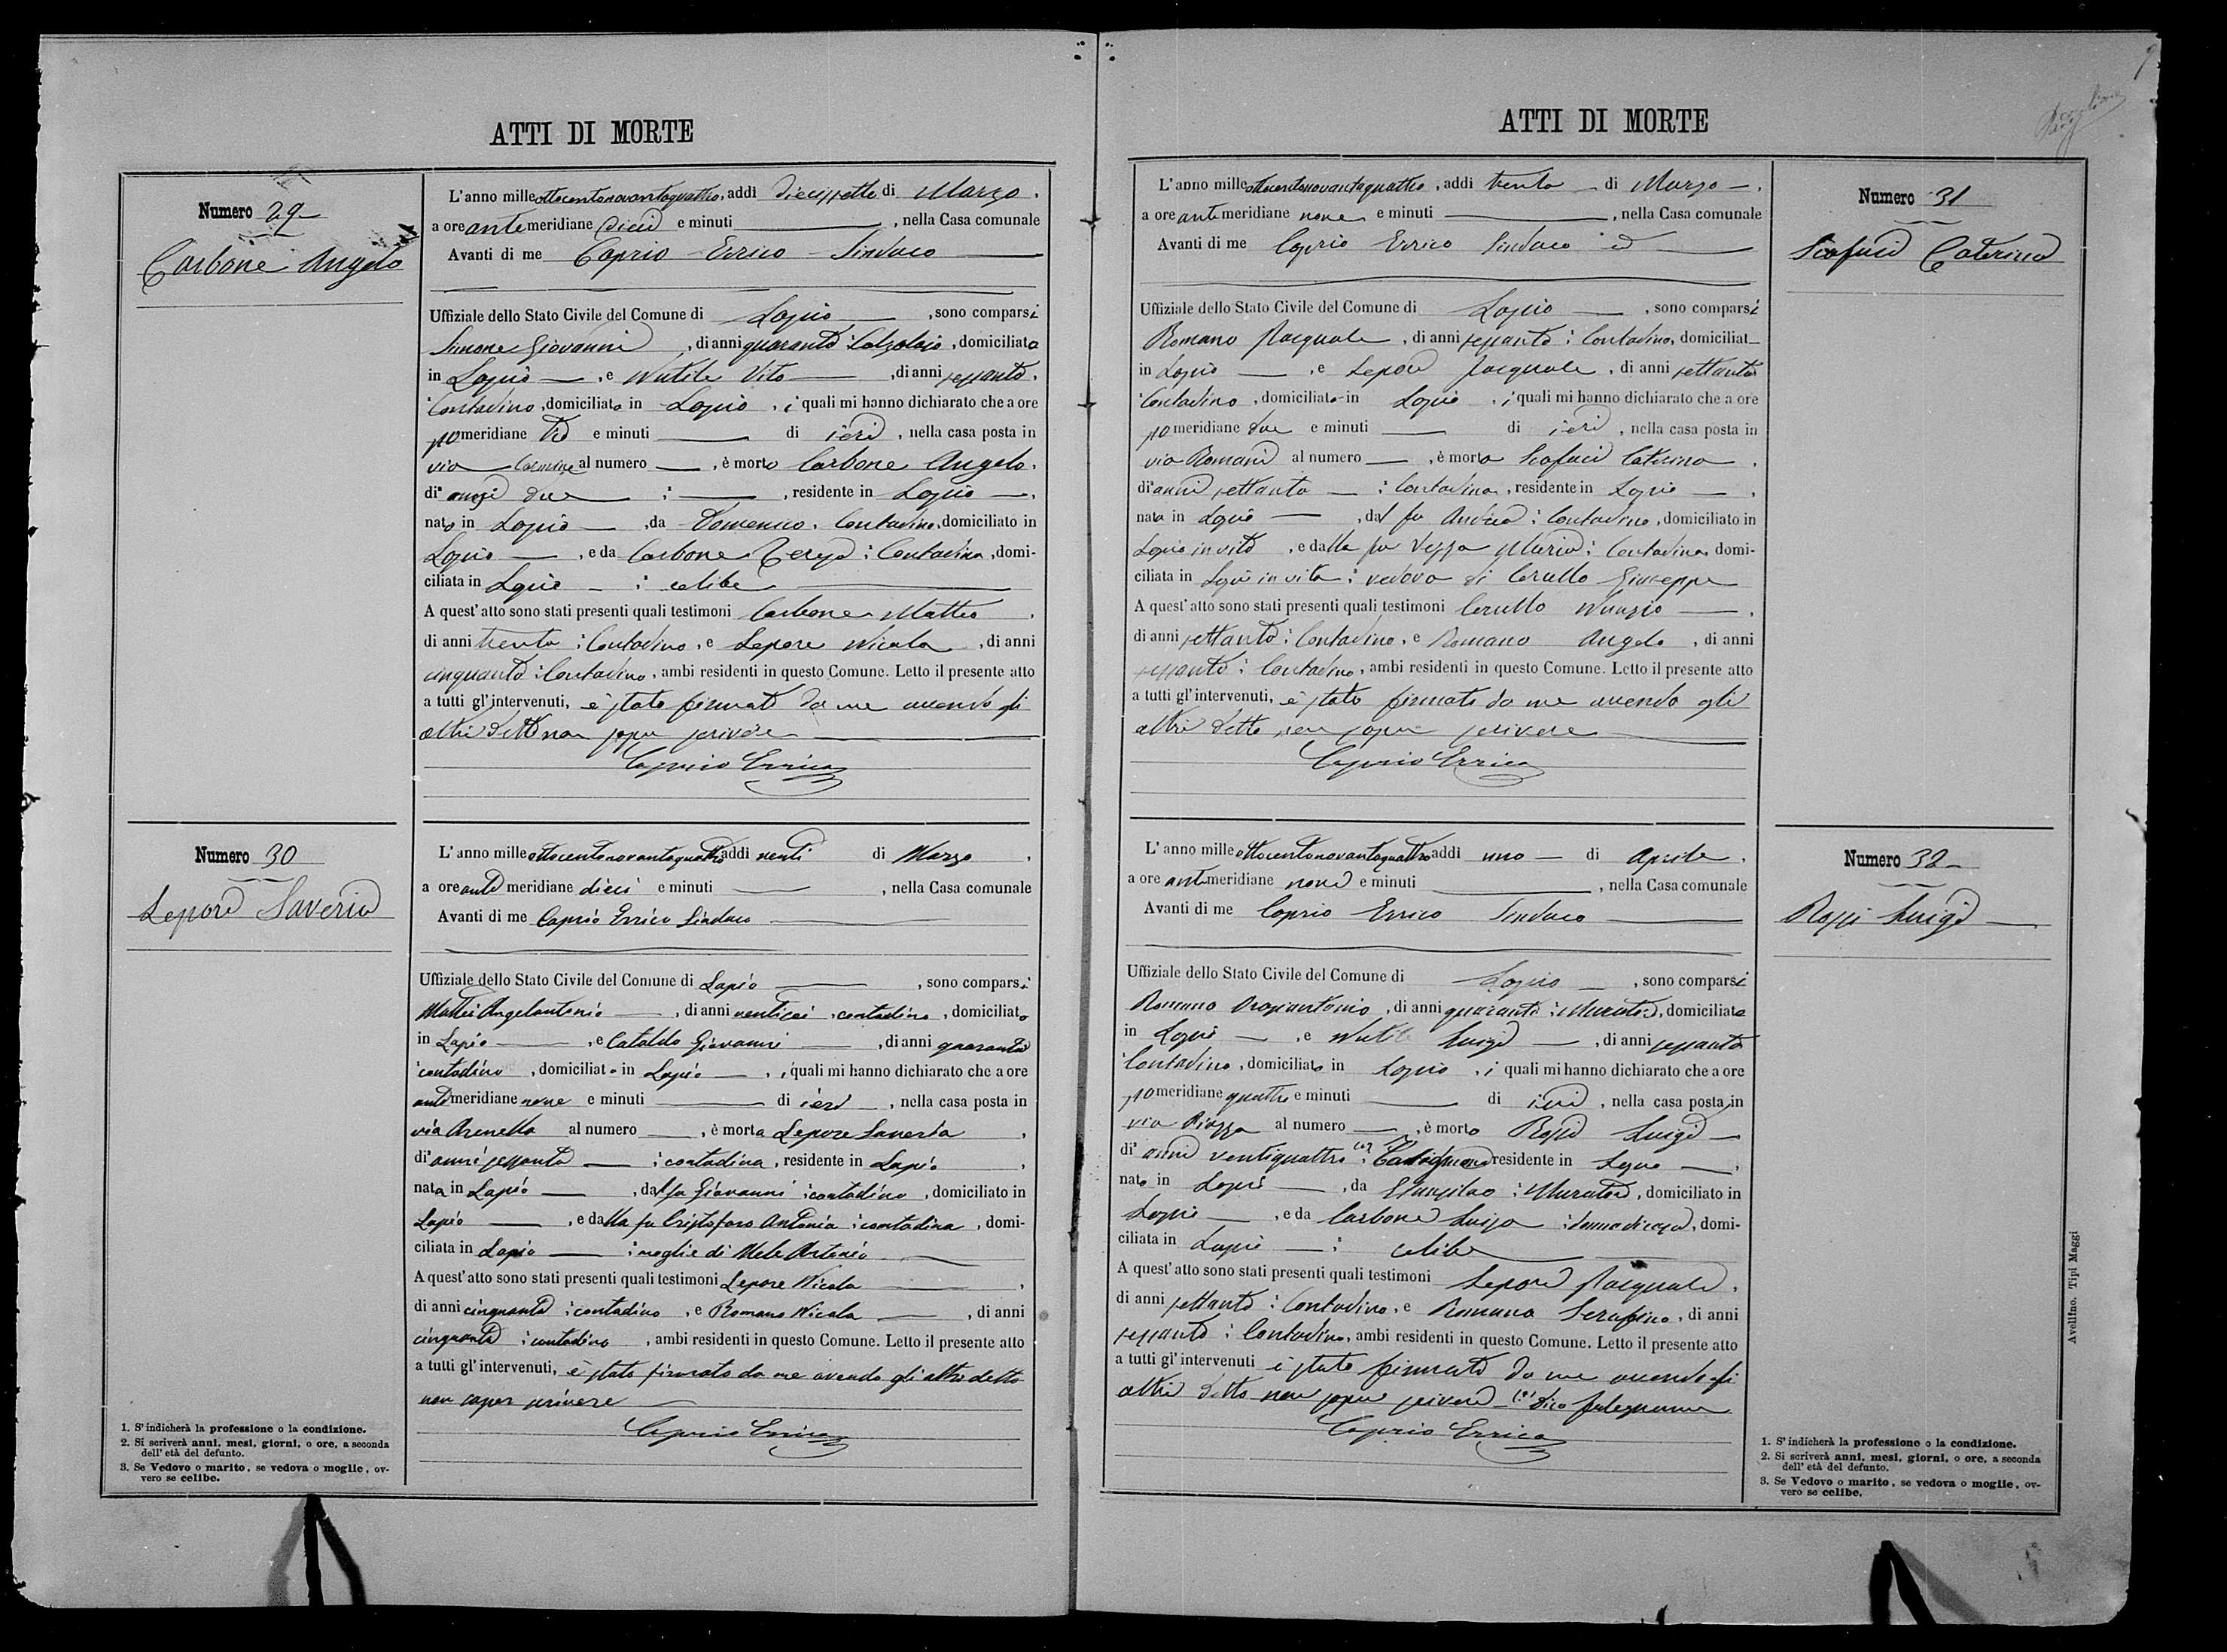 ATTI DI MORTE
Numero 29
Carbone Angelo
L'anno mille ottocentonovantaquattro, addì diecissette di Marzo,
a ore ante meridiane dieci e minuti ———, nella Casa comunale
Avanti di me Caprio Errico Sindaco
Uffiziale dello Stato Civile del Comune di Lapio ———, sono comparsi
Simone Giovanni, di anni quaranta Calzolaio, domiciliato
in Lapio —, e Nutile Vito —, di anni sessanta,
Contadino, domiciliato in Lapio, i quali mi hanno dichiarato che a ore
pomeridiane tre e minuti ——— di ieri, nella casa posta in
via Carmine al numero —, è morto Carbone Angelo,
di anni due — : —, residente in Lapio —,
nato in Lapio —, da Domenico, Contadino, domiciliato in
Lapio —, e da Carbone Teresa : Contadina, domi-
ciliata in Lapio — : celibe
A quest'atto sono stati presenti quali testimoni Carbone Matteo,
di anni trenta : Contadino, e Lepore Nicola, di anni
cinquanta : Contadino, ambi residenti in questo Comune. Letto il presente atto
a tutti gl'intervenuti, è stato firmato da me avendo gli
altri detto non saper scrivere
Caprio Errico
Numero 30
Lepore Saveria
L'anno mille ottocentonovantaquattro addì venti di Marzo,
a ore ante meridiane dieci e minuti ———, nella Casa comunale
Avanti di me Caprio Errico Sindaco
Uffiziale dello Stato Civile del Comune di Lapio ———, sono comparsi
Mattei Angelantonio —, di anni ventisei, contadino, domiciliato
in Lapio —, e Cataldo Giovanni —, di anni quaranta
contadino, domiciliato in Lapio —, i quali mi hanno dichiarato che a ore
ante meridiane nove e minuti ——— di ieri —, nella casa posta in
via Arenella al numero —, è morta Lepore Saveria,
di anni sessanta — : contadina, residente in Lapio,
nata in Lapio —, dal fu Giovanni : contadino, domiciliato in
Lapio —, e dalla fu Cristofaro Antonia : contadina, domi-
ciliata in Lapio — : moglie di Mele Antonio
A quest'atto sono stati presenti quali testimoni Lepore Nicola ———,
di anni cinquanta : contadino, e Romano Nicola —, di anni
cinquanta : contadino, ambi residenti in questo Comune. Letto il presente atto
a tutti gl'intervenuti, è stato firmato da me avendo gli altri detto
non saper scrivere
Caprio Errico
1. S'indicherà la professione o la condizione.
2. Si scriverà anni, mesi, giorni, o ore, a seconda
dell'età del defunto.
3. Se Vedovo o marito, se vedova o moglie, ov-
vero se celibe.
9
ATTI DI MORTE
Numero 31
Scafuri Caterina
L'anno mille ottocentonovantaquattro, addì trenta — di Marzo —,
a ore ante meridiane nove e minuti ———, nella Casa comunale
Avanti di me Caprio Errico Sindaco
Uffiziale dello Stato Civile del Comune di Lapio —, sono comparsi
Romano Pasquale, di anni sessanta : Contadino, domiciliat_
in Lapio —, e Lepore Pasquale, di anni settanta
Contadino, domiciliato in Lapio, i quali mi hanno dichiarato che a ore
pomeridiane due e minuti ——— di ieri, nella casa posta in
via Romani al numero —, è morta Scafuri Caterina,
di anni settanta — : Contadina, residente in Lapio —,
nata in Lapio —, dal fu Andrea : Contadino, domiciliato in
Lapio in vita, e dalla fu Maria : Contadina, domi-
ciliata in Lapio in vita : vedova di Cerullo Giuseppe
A quest'atto sono stati presenti quali testimoni Cerullo Nunzio —,
di anni settanta : Contadino, e Romano Angelo, di anni
sessanta : Contadino, ambi residenti in questo Comune. Letto il presente atto
a tutti gl'intervenuti, è stato firmato da me avendo gli
altri detto non saper scrivere
Caprio Errico
Numero 32
Rossi Luigi
L'anno mille ottocentonovantaquattro addì uno — di Aprile,
a ore antimeridiane nove e minuti ———, nella Casa comunale
Avanti di me Caprio Errico Sindaco
Uffiziale dello Stato Civile del Comune di Lapio —, sono comparsi
Romano, di anni quaranta : Muratore, domiciliato
in Lapio —, e Nutile Luigi —, di anni sessanta
Contadino, domiciliato in Lapio, i quali mi hanno dichiarato che a ore
pomeridiane quattro e minuti ——— di ieri, nella casa posta in
via Piazza al numero —, è morto Rossi Luigi —
di anni ventiquattro : residente in Lapio —,
nato in Lapio —, da : Muratore, domiciliato in
Lapio —, e da Carbone Luisa : donna di casa, domi-
ciliata in Lapio — : celibe
A quest'atto sono stati presenti quali testimoni Lepore Pasquale,
di anni settanta : Contadino, e Romano Serafino, di anni
sessanta : Contadino, ambi residenti in questo Comune. Letto il presente atto
a tutti gl'intervenuti è stato firmato da me avendo gli
altri detto non saper scrivere — dico falegname
Caprio Errico
1. S'indicherà la professione o la condizione.
2. Si scriverà anni, mesi, giorni, o ore, a seconda
dell'età del defunto.
3. Se Vedovo o marito, se vedova o moglie, ov-
vero se celibe.
Avellino. Tipi Maggi